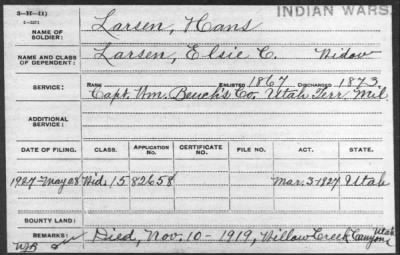 INDIAN WARS.
3-Ε-(1)
NAME OF SOLDIER: Larsen, Hans
NAME AND CLASS OF DEPENDENT: Larsen, Elsie C. Widow
SERVICE: RANK ENLISTED 1867 DISCHARGED 1873
Capt. Wm. Beach's Co. Utah Terr. Mil.
ADDITIONAL SERVICE:
DATE OF FILING. CLASS. APPLICATION NO. CERTIFICATE NO. FILE NO. ACT. STATE.
1927-May 28 Wid. 15 82658 Mar. 3-1927 Utah
BOUNTY LAND:
REMARKS: Died, Nov. 10-1919, Willow Creek Canyon, Utah